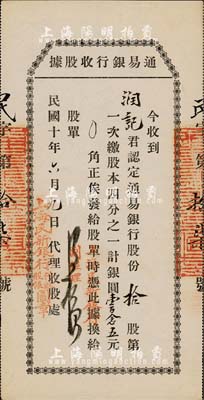 上海陽明拍賣
通易銀行收股據
今收到
潤記君認定通易銀行股份拾股第
一次繳股本四分之一計銀圓壹百念五元
0角正俟發給股單時憑此據換給
股單
民國十年六月 日代理收股處
民字第拾柒號